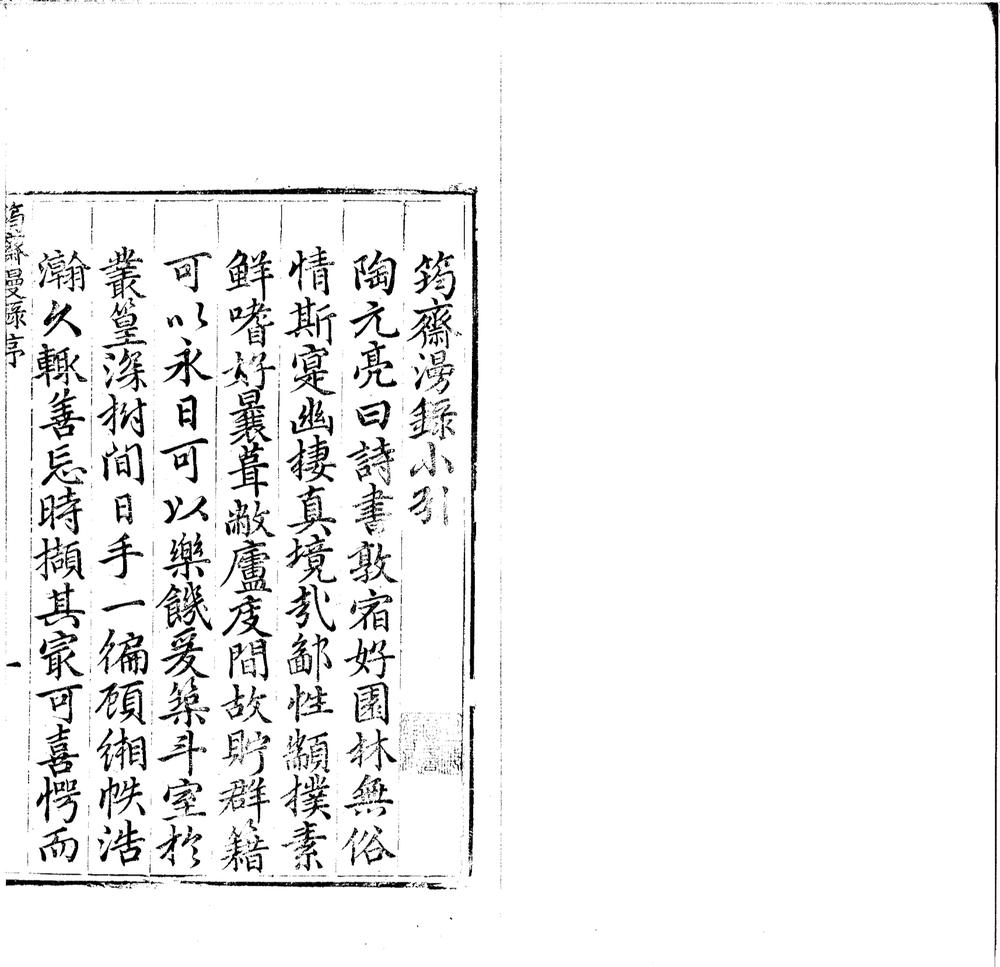 筠齋漫錄小引
陶元亮曰詩書敦宿好園林無俗
情斯寔幽棲真境㢤鄙性顓撲素
鮮嗜好曩葺敝廬庋間故貯群籍
可以永日可以樂饑爰築斗室於
叢篁深樹間日手一徧顧緗帙浩
瀚久輒善忘時擷其㝡可喜愕而
筠齋漫錄序
一